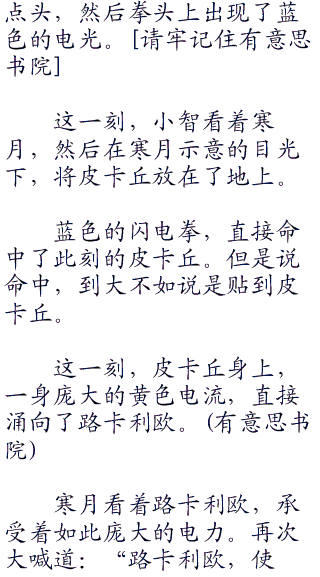 点头，然后拳头上出现了蓝
色的电光。[请牢记住有意思
书院]
这一刻，小智看着寒
月，然后在寒月示意的目光
下，将皮卡丘放在了地上。
蓝色的闪电拳，直接命
中了此刻的皮卡丘。但是说
命中，到大不如说是贴到皮
卡丘。
这一刻，皮卡丘身上，
一身庞大的黄色电流，直接
涌向了路卡利欧。(有意思书
院)
寒月看着路卡利欧，承
受着如此庞大的电力。再次
大喊道：“路卡利欧，使